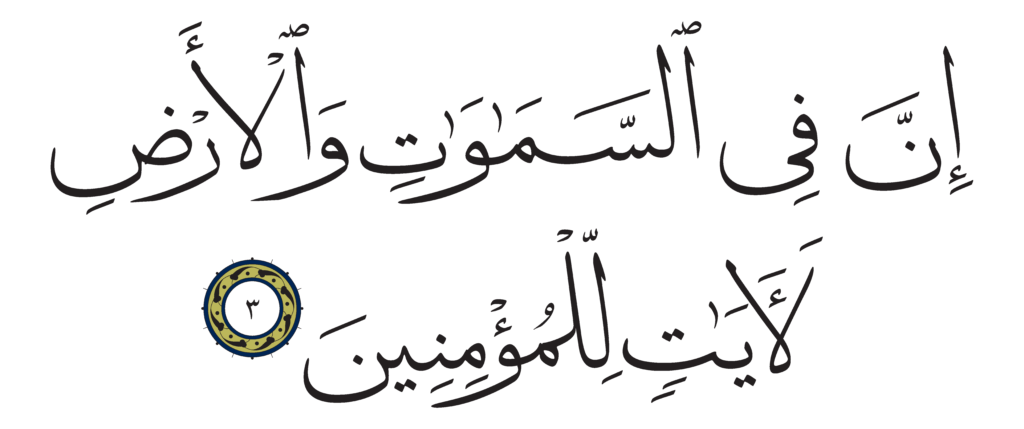 إِنَّ فِى ٱلسَّمَـٰوَٰتِ وَٱلْأَرْضِ
لَـَٔايَـٰتٍ لِّلْمُؤْمِنِينَ ٣